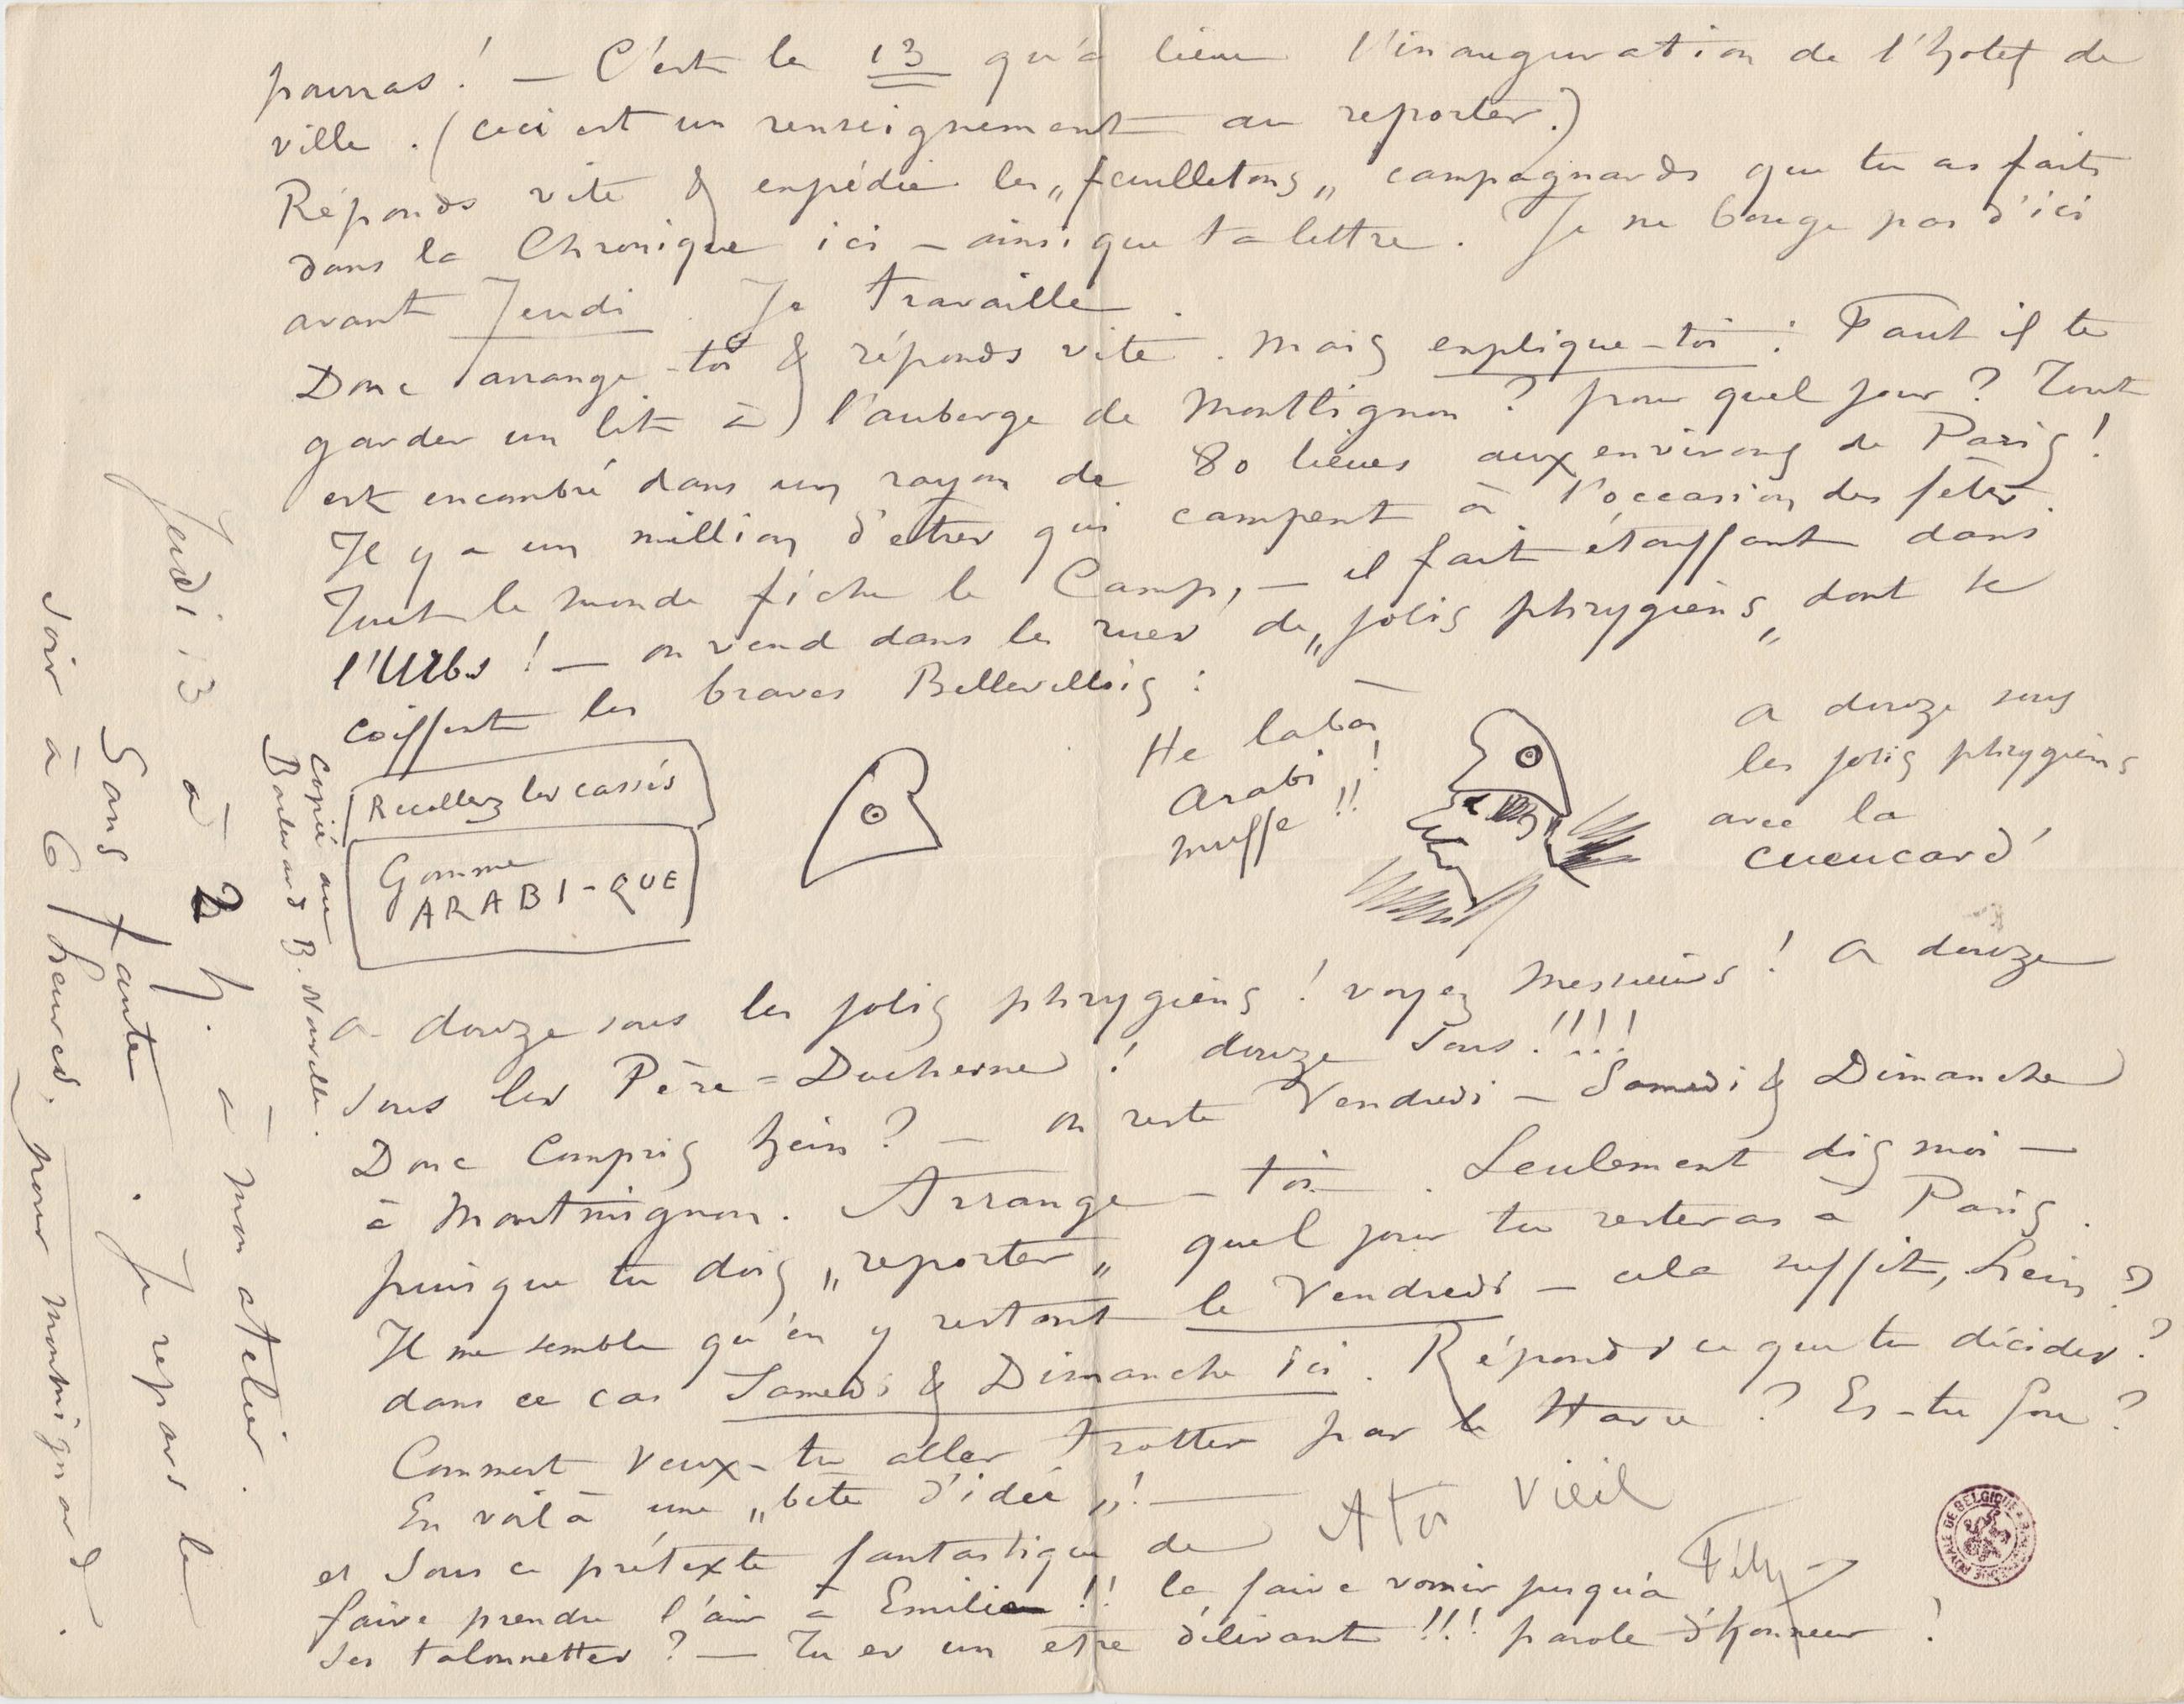 pourras ! — C'est le 13 qu'a lieu l'inauguration de l'hotel de
ville . (ceci est un renseignement au reporter.)
Réponds vite & expédie les „feuilletons„ campagnards que tu as faits
dans la Chronique ici – ainsi que ta lettre . Je ne bouge pas d'ici
avant Jeudi . Je travaille .
Donc arrange-toi & réponds vite . Mais explique-toi : Faut il te
garder un lit à l'auberge de Montlignon ? pour quel jour ? Tout
est encombré dans un rayon de 80 lieues aux environs de Paris !
Il y a un million d'etres qui campent à l'occasion des fêtes .
Tout le monde fiche le Camp, — il fait étouffant dans
l'Urbs ! — on vend dans les rues de „jolis phrygiens„ dont se
coiffent les braves Bellevillois :
Recollez les cassés
Gomme
ARABI-QUE
copié au
Boulevard B. Nouvelle .
He labas
Arabi !
muffe !!
a douze sous
les jolis phrygiens
avec la
cucucard'
a douze sous les jolis phrygiens ! voyez Messieurs ! a douze
sous les Père=Duchesne ! douze sous !!!!
Donc Compris hein ? — on reste Vendredi – Samedi & Dimanche
à Montmignon . Arrange-toi . Seulement dis moi —
puisque tu dois „reporter„ quel jour tu resteras à Paris .
Il me semble qu'en y restant le Vendredi – cela suffit, hein ?
dans ce cas Samedi & Dimanche ici . Réponds ce que tu décides ?
Comment veux-tu aller trotter par le Havre ? Es-tu fou ?
En voilà une „bête d'idée„ ! —
A toi Vieil
Fély
et sous ce prétexte fantastique de
faire prendre l'air à Emilie !! la faire vomir jusqu'à
ses talonnettes ? — Tu es un etre délirant !!! parole d'honneur !
Jeudi 13 à 2 h. à mon atelier .
Sans faute . Je repars le
soir à 6 heures, pour Montmignard .